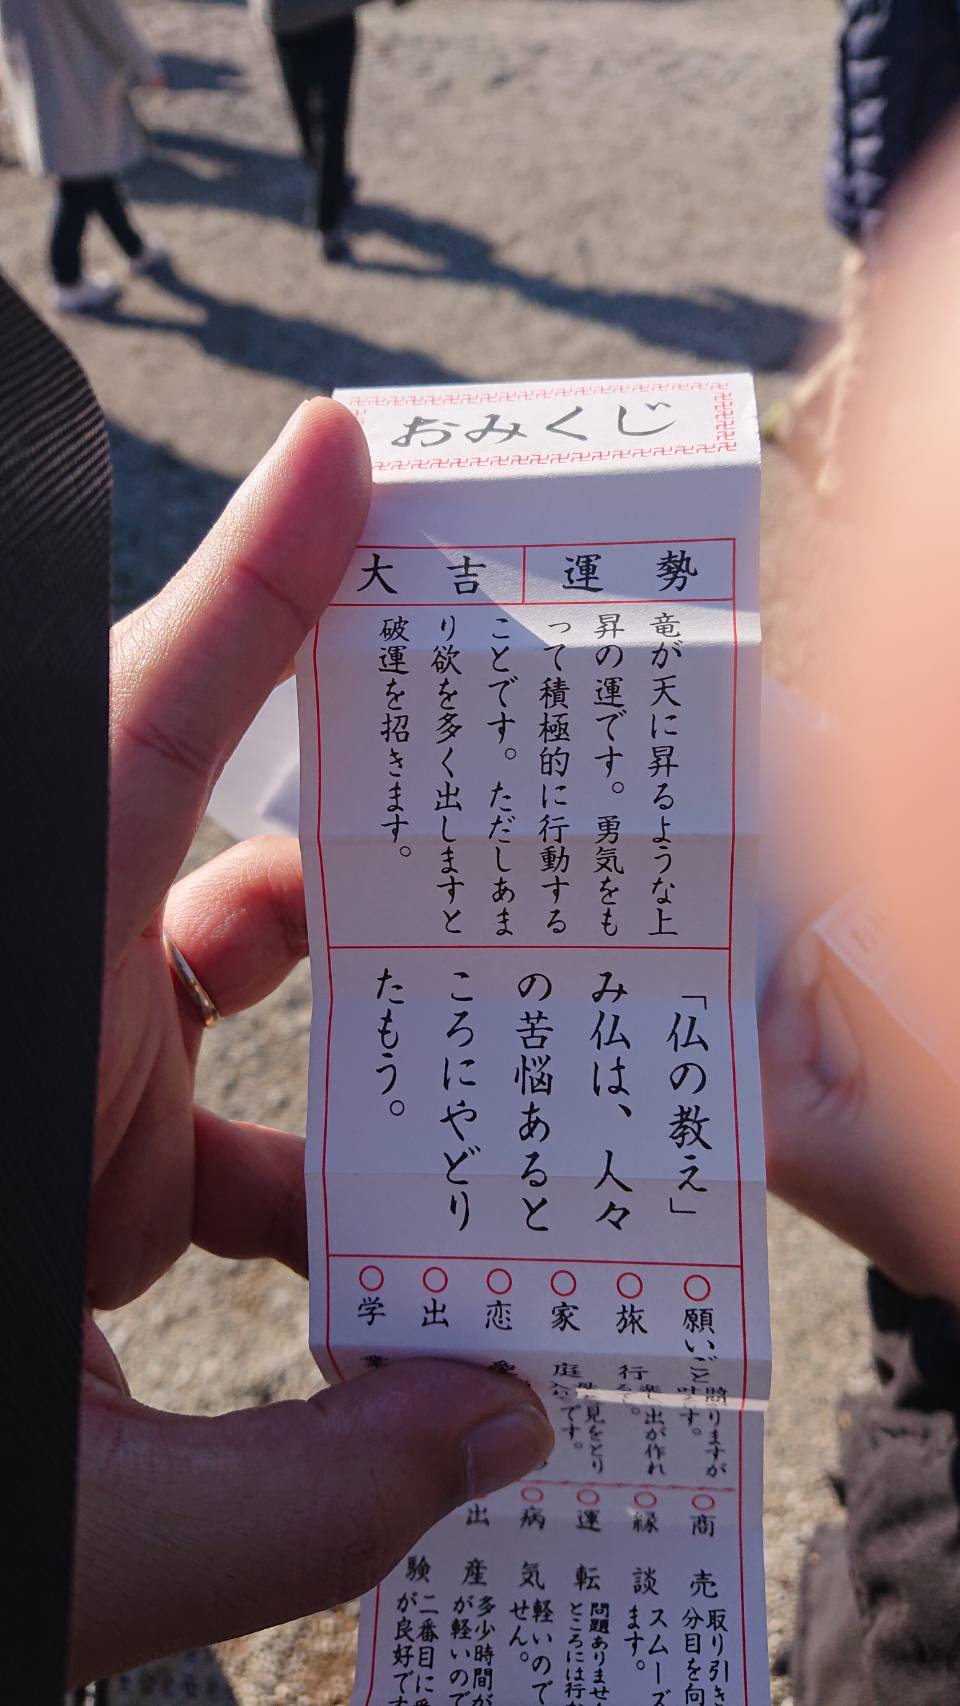 おみくじ
運勢
大吉
竜が天に昇るような上
昇の運です。勇気をも
って積極的に行動する
ことです。ただしあま
り欲を多く出しますと
破運を招きます。
「仏の教え」
み仏は、人々
の苦悩あると
ころにやどり
たもう。
○願いごと
○旅行
出が作れ
○家庭
○恋愛
○出
○学業
○商売
取り引き
分目を向
○縁談
スムーズ
ます。
○運転
問題ありませ
ところには行
○病気
軽いので
せん。
出産
多少時間が
が軽いので
験
二番目に
が良好です